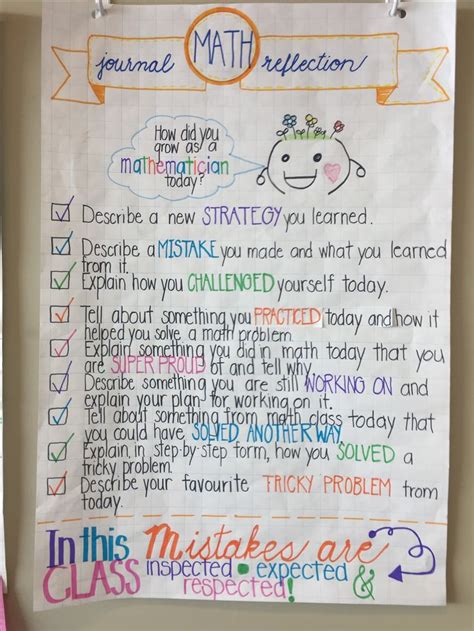 journal MATH reflection
How did you
grow as a
mathematician
today?
Describe a new STRATEGY you learned.
Describe a MISTAKE you made and what you learned
from it.
Explain how you CHALLENGED yourself today.
Tell about something you PRACTICED today and how it
helped you solve a math problem.
Explain something you did in math today that you
are SUPER PROUD of and tell why.
Describe something you are still WORKING ON and
explain your plan for working on it.
Tell about something from math class today that
you could have SOLVED ANOTHER WAY.
Explain, in step-by-step form, how you SOLVED a
tricky problem.
Describe your favourite TRICKY PROBLEM from
today.
In this Mistakes are
CLASS inspected • expected &
respected!